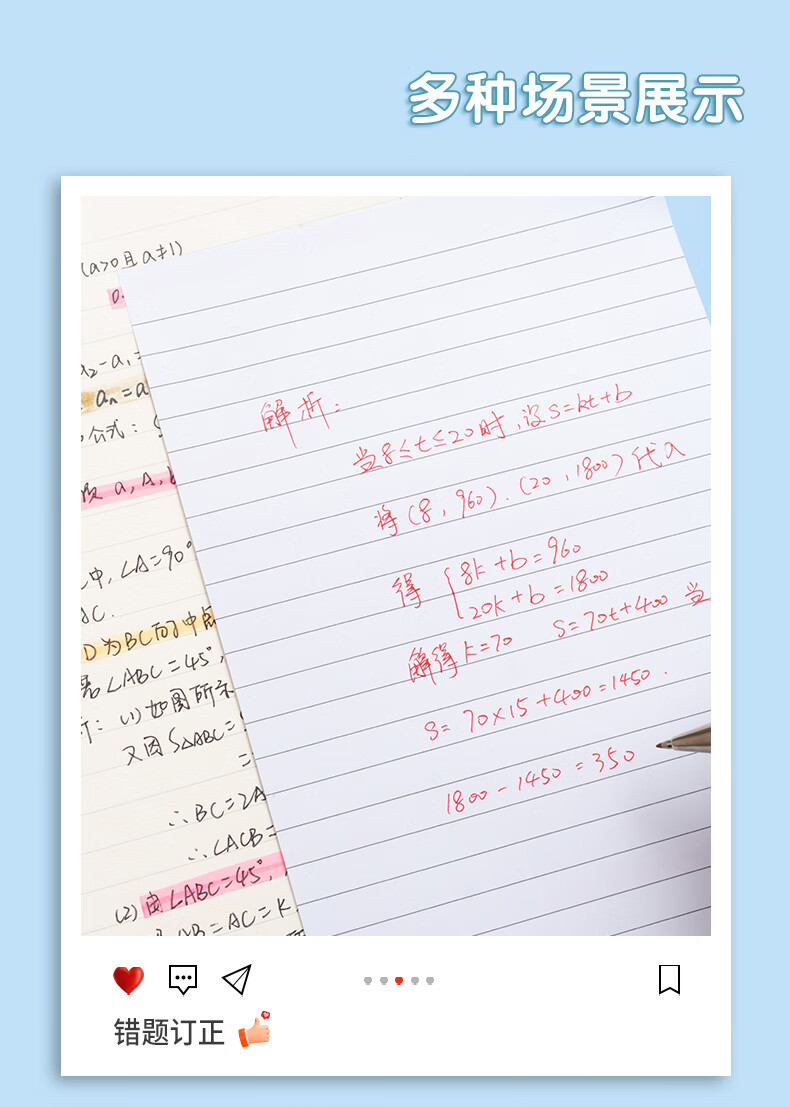 多种场景展示
(a>0且a≠1)
a₂-a₁=
aₙ=a
公式:
a,A,b
中,∠A=90°
AC.
D为BC的中点
若∠ABC=45°,
(1)如图所示
又因S△ABC=
∴BC=2A
∴∠ACB=
(2)由∠ABC=45°,
AB=AC=K
解析:
当8≤t≤20时,设S=kt+b
将(8,960).(20,1800)代入
得 {8k+b=960
20k+b=1800
解得k=70 S=70t+400 当
S=70×15+400=1450.
1800-1450=350
错题订正